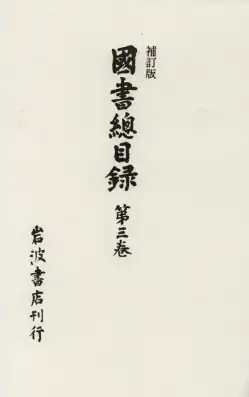 補訂版
國書總目録 第三巻
岩波書店刊行